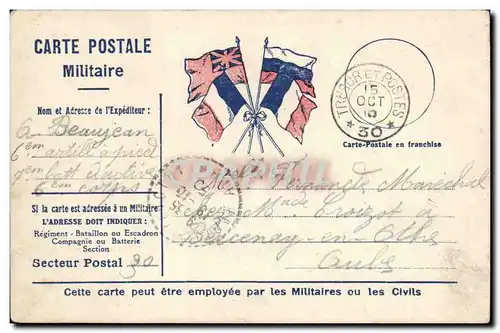 CARTE POSTALE
Militaire
Nom et Adresse de l'Expéditeur :
G Beaujean
6em artill à pied
batt
6em corps
Si la carte est adressée à un Militaire
L'ADRESSE DOIT INDIQUER :
Régiment - Bataillon ou Escadron
Compagnie ou Batterie
Section
Secteur Postal 30
TRESOR ET POSTES
15
OCT
* 30 *
Carte-Postale en franchise
Maréchal
chez Made Croizot à
Bercenay-en-Othe
Aube
Cette carte peut être employée par les Militaires ou les Civils